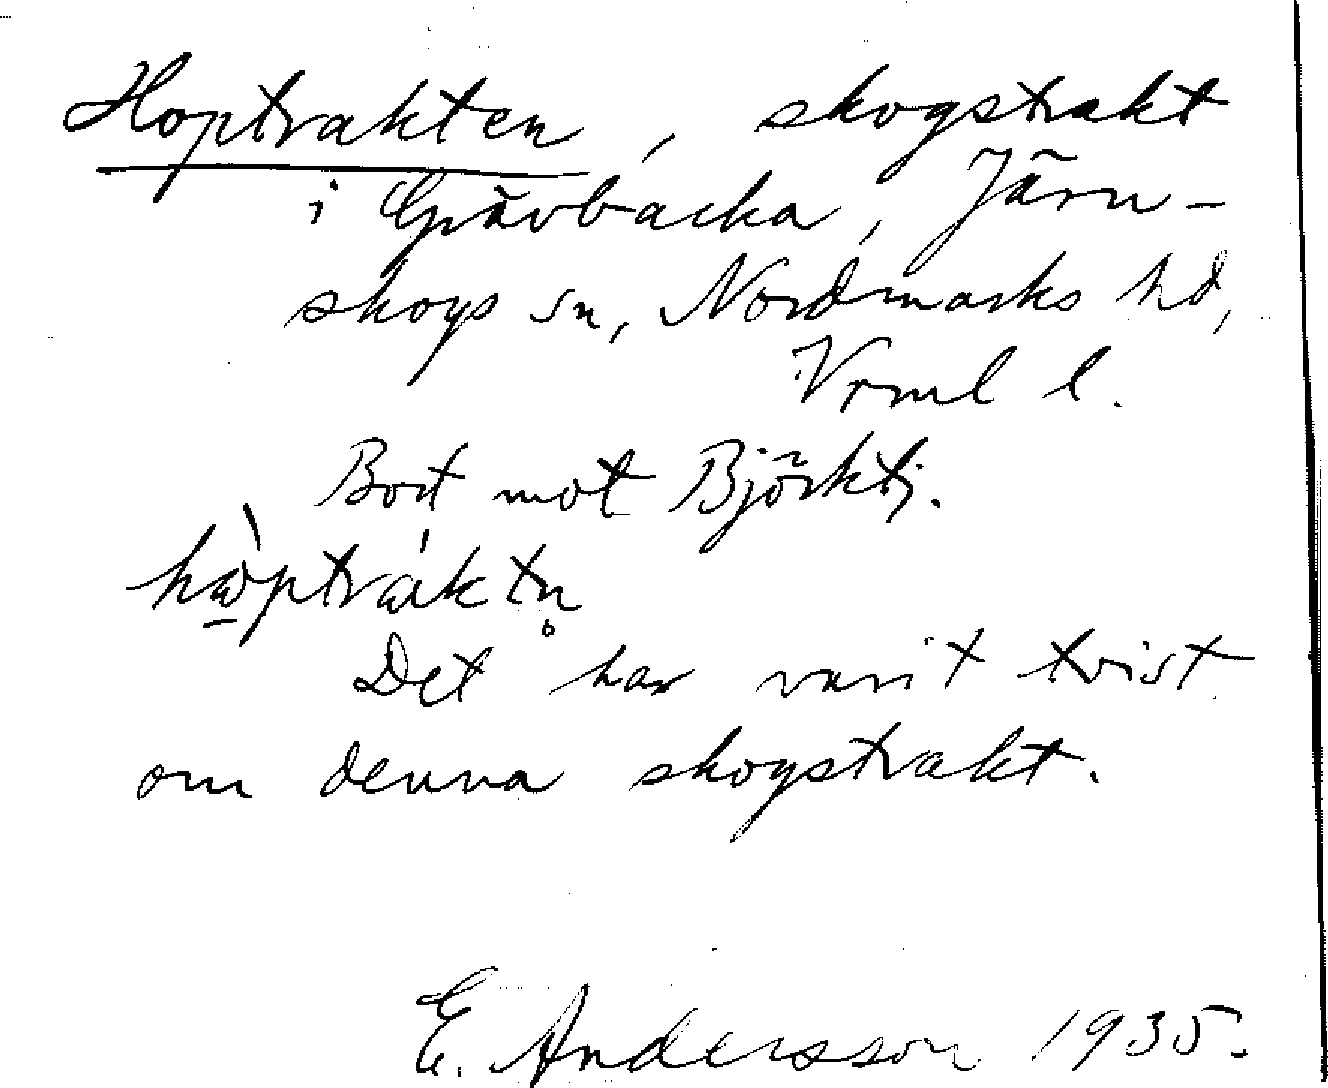 Hoptrakten, skogstrakt
i Grävbacka, Järn-
skogs sn, Nordmarks hd,
Vrml l.
Bort mot Björktj.
hὼ̠ptráktn̥
Det har varit tvist
om denna skogstrakt.
E. Andersson 1935.